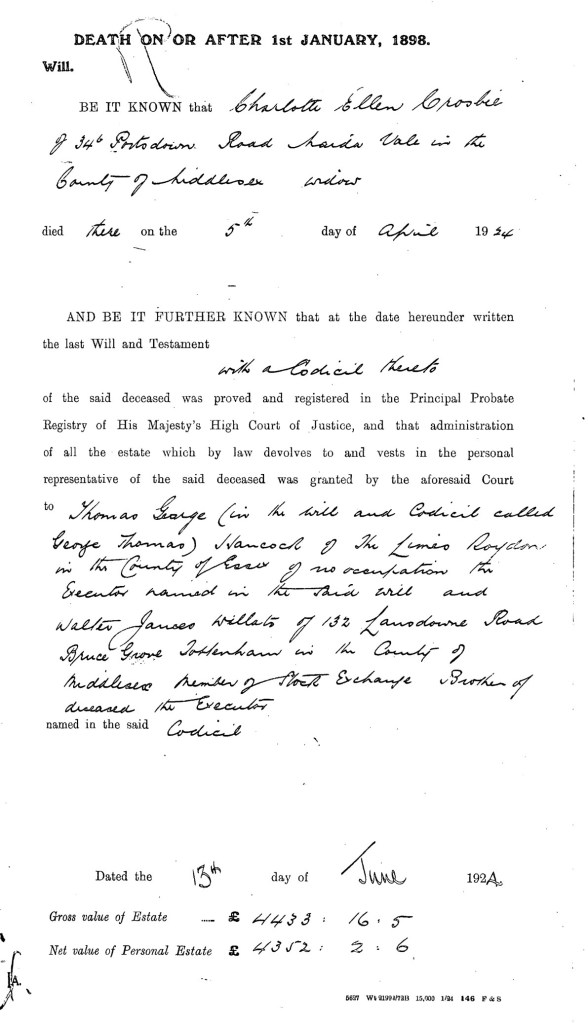 DEATH ON OR AFTER 1st JANUARY, 1898.
Will.
BE IT KNOWN that Charlotte Ellen Crosbie
of 34b Portsdown Road Maida Vale in the
County of Middlesex widow
died there on the 5th day of April 1924
AND BE IT FURTHER KNOWN that at the date hereunder written
the last Will and Testament
with a Codicil thereto
of the said deceased was proved and registered in the Principal Probate
Registry of His Majesty's High Court of Justice, and that administration
of all the estate which by law devolves to and vests in the personal
representative of the said deceased was granted by the aforesaid Court
to Thomas George (in the will and Codicil called
George Thomas) Hancock of The Limes Roydon
in the County of Essex of no occupation the
Executor named in the said will and
Walter James Willats of 132 Lansdowne Road
Bruce Grove Tottenham in the County of
Middlesex Member of Stock Exchange Brother of
deceased the Executor
named in the said Codicil
Dated the 13th day of June 1924.
Gross value of Estate ...... £ 4433 : 16 . 5
Net value of Personal Estate £ 4352 : 2 . 6
A.
5627 Wt 21994/72B 15,000 1/24 146 F & S